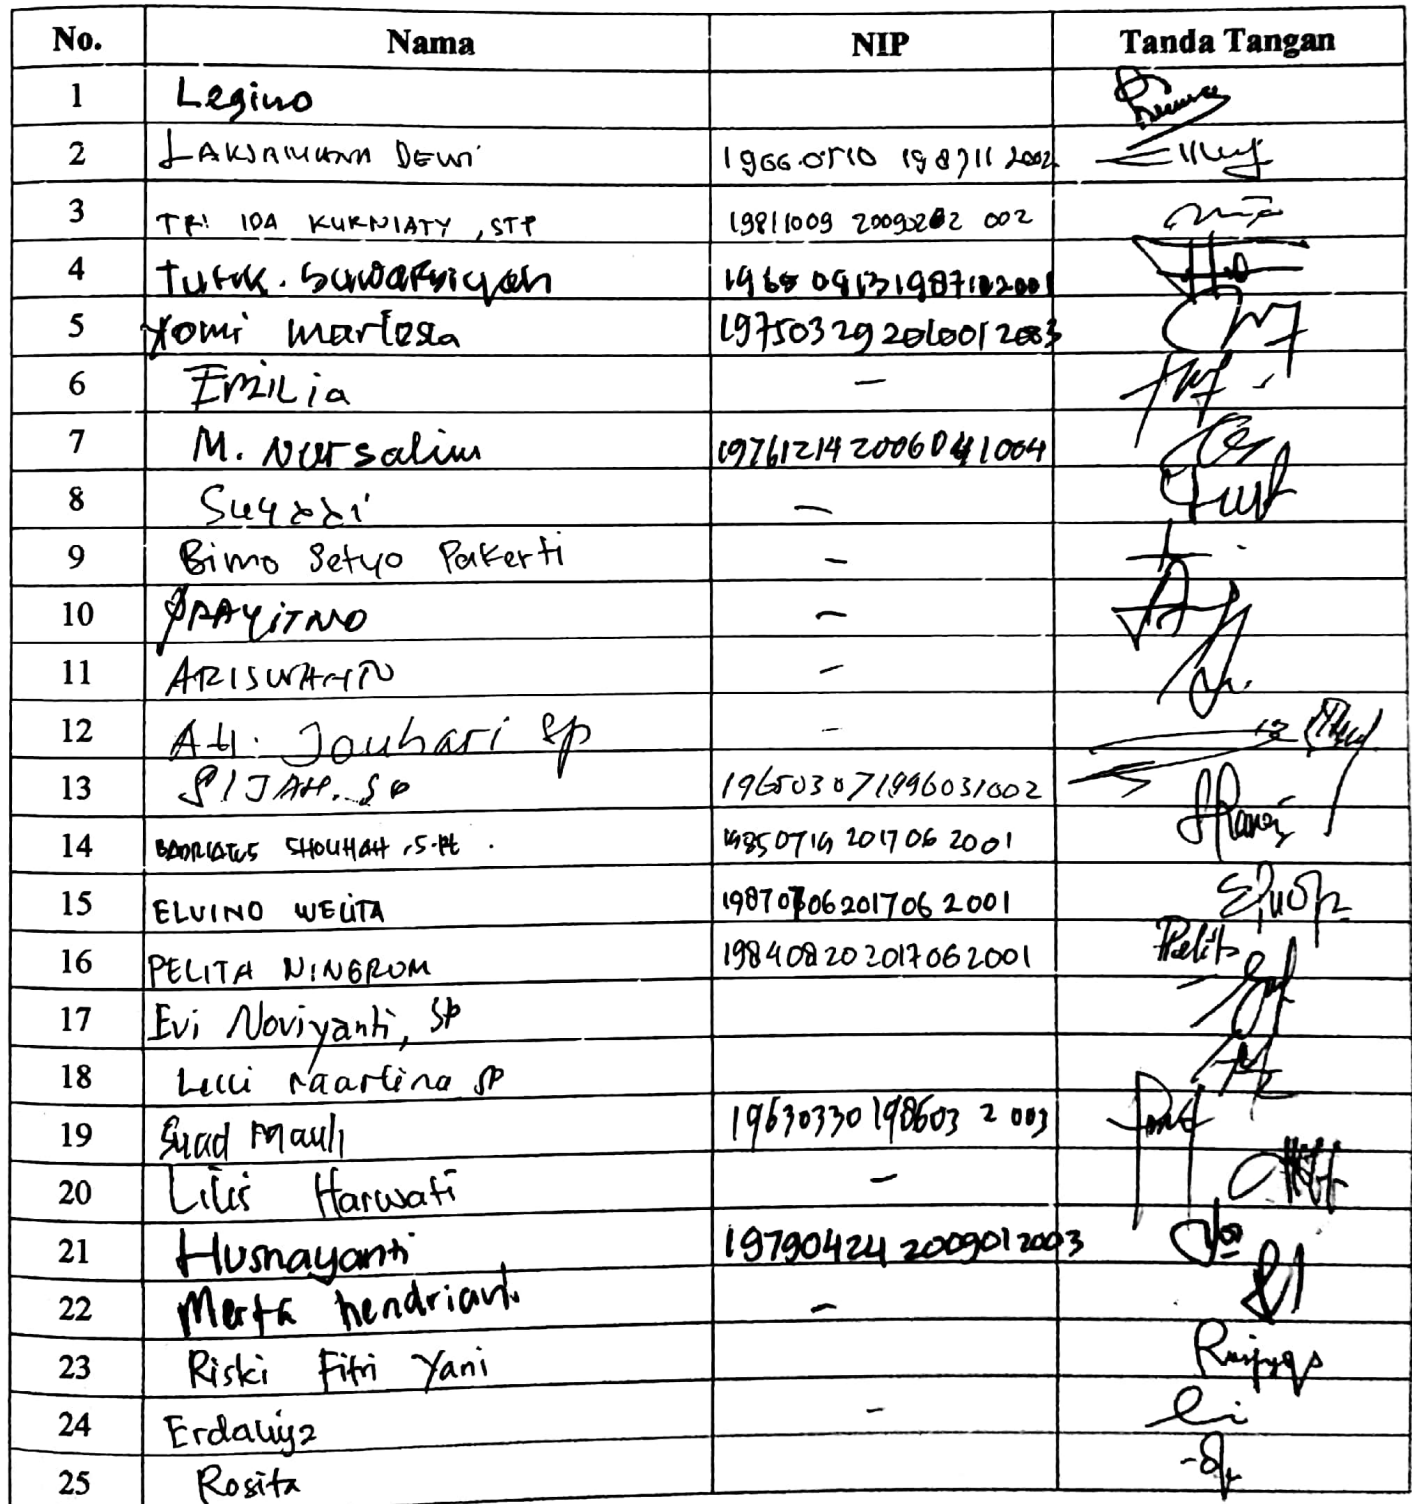 No. Nama NIP Tanda Tangan
1 Legino
2 LAKSAMANA DEWI 19660510 198711 2002
3 TRI IDA KURNIATY, STP 19811009 20090202 002
4 Tutik. Suwarsiyah
5 Yomi Martesa 197503292010012003
6 Emilia -
7 M. Nursalim 197612142006041004
8 Suyadi -
9 Bimo Setyo Pakerti -
10 PRAYITNO -
11 ARISWANTO -
12 AH. Jauhari SP -
13 SIJAH. SP 196503071996031002
14 SHOLIHAH, S.Pt. 19850719 201706 2001
15 ELVINO WELITA 19870706201706 2001
16 PELITA NINGRUM 19840820 2017062001 Pelita
17 Evi Noviyanti, SP
18 Maartina SP
19 Suad Mauli 19630330 198603 2 003
20 Lilis Harwati -
21 Husnayanti 19790424 2009012003
22 Merta hendrianti -
23 Riski Fitri Yani
24 Erdaliya -
25 Rosita